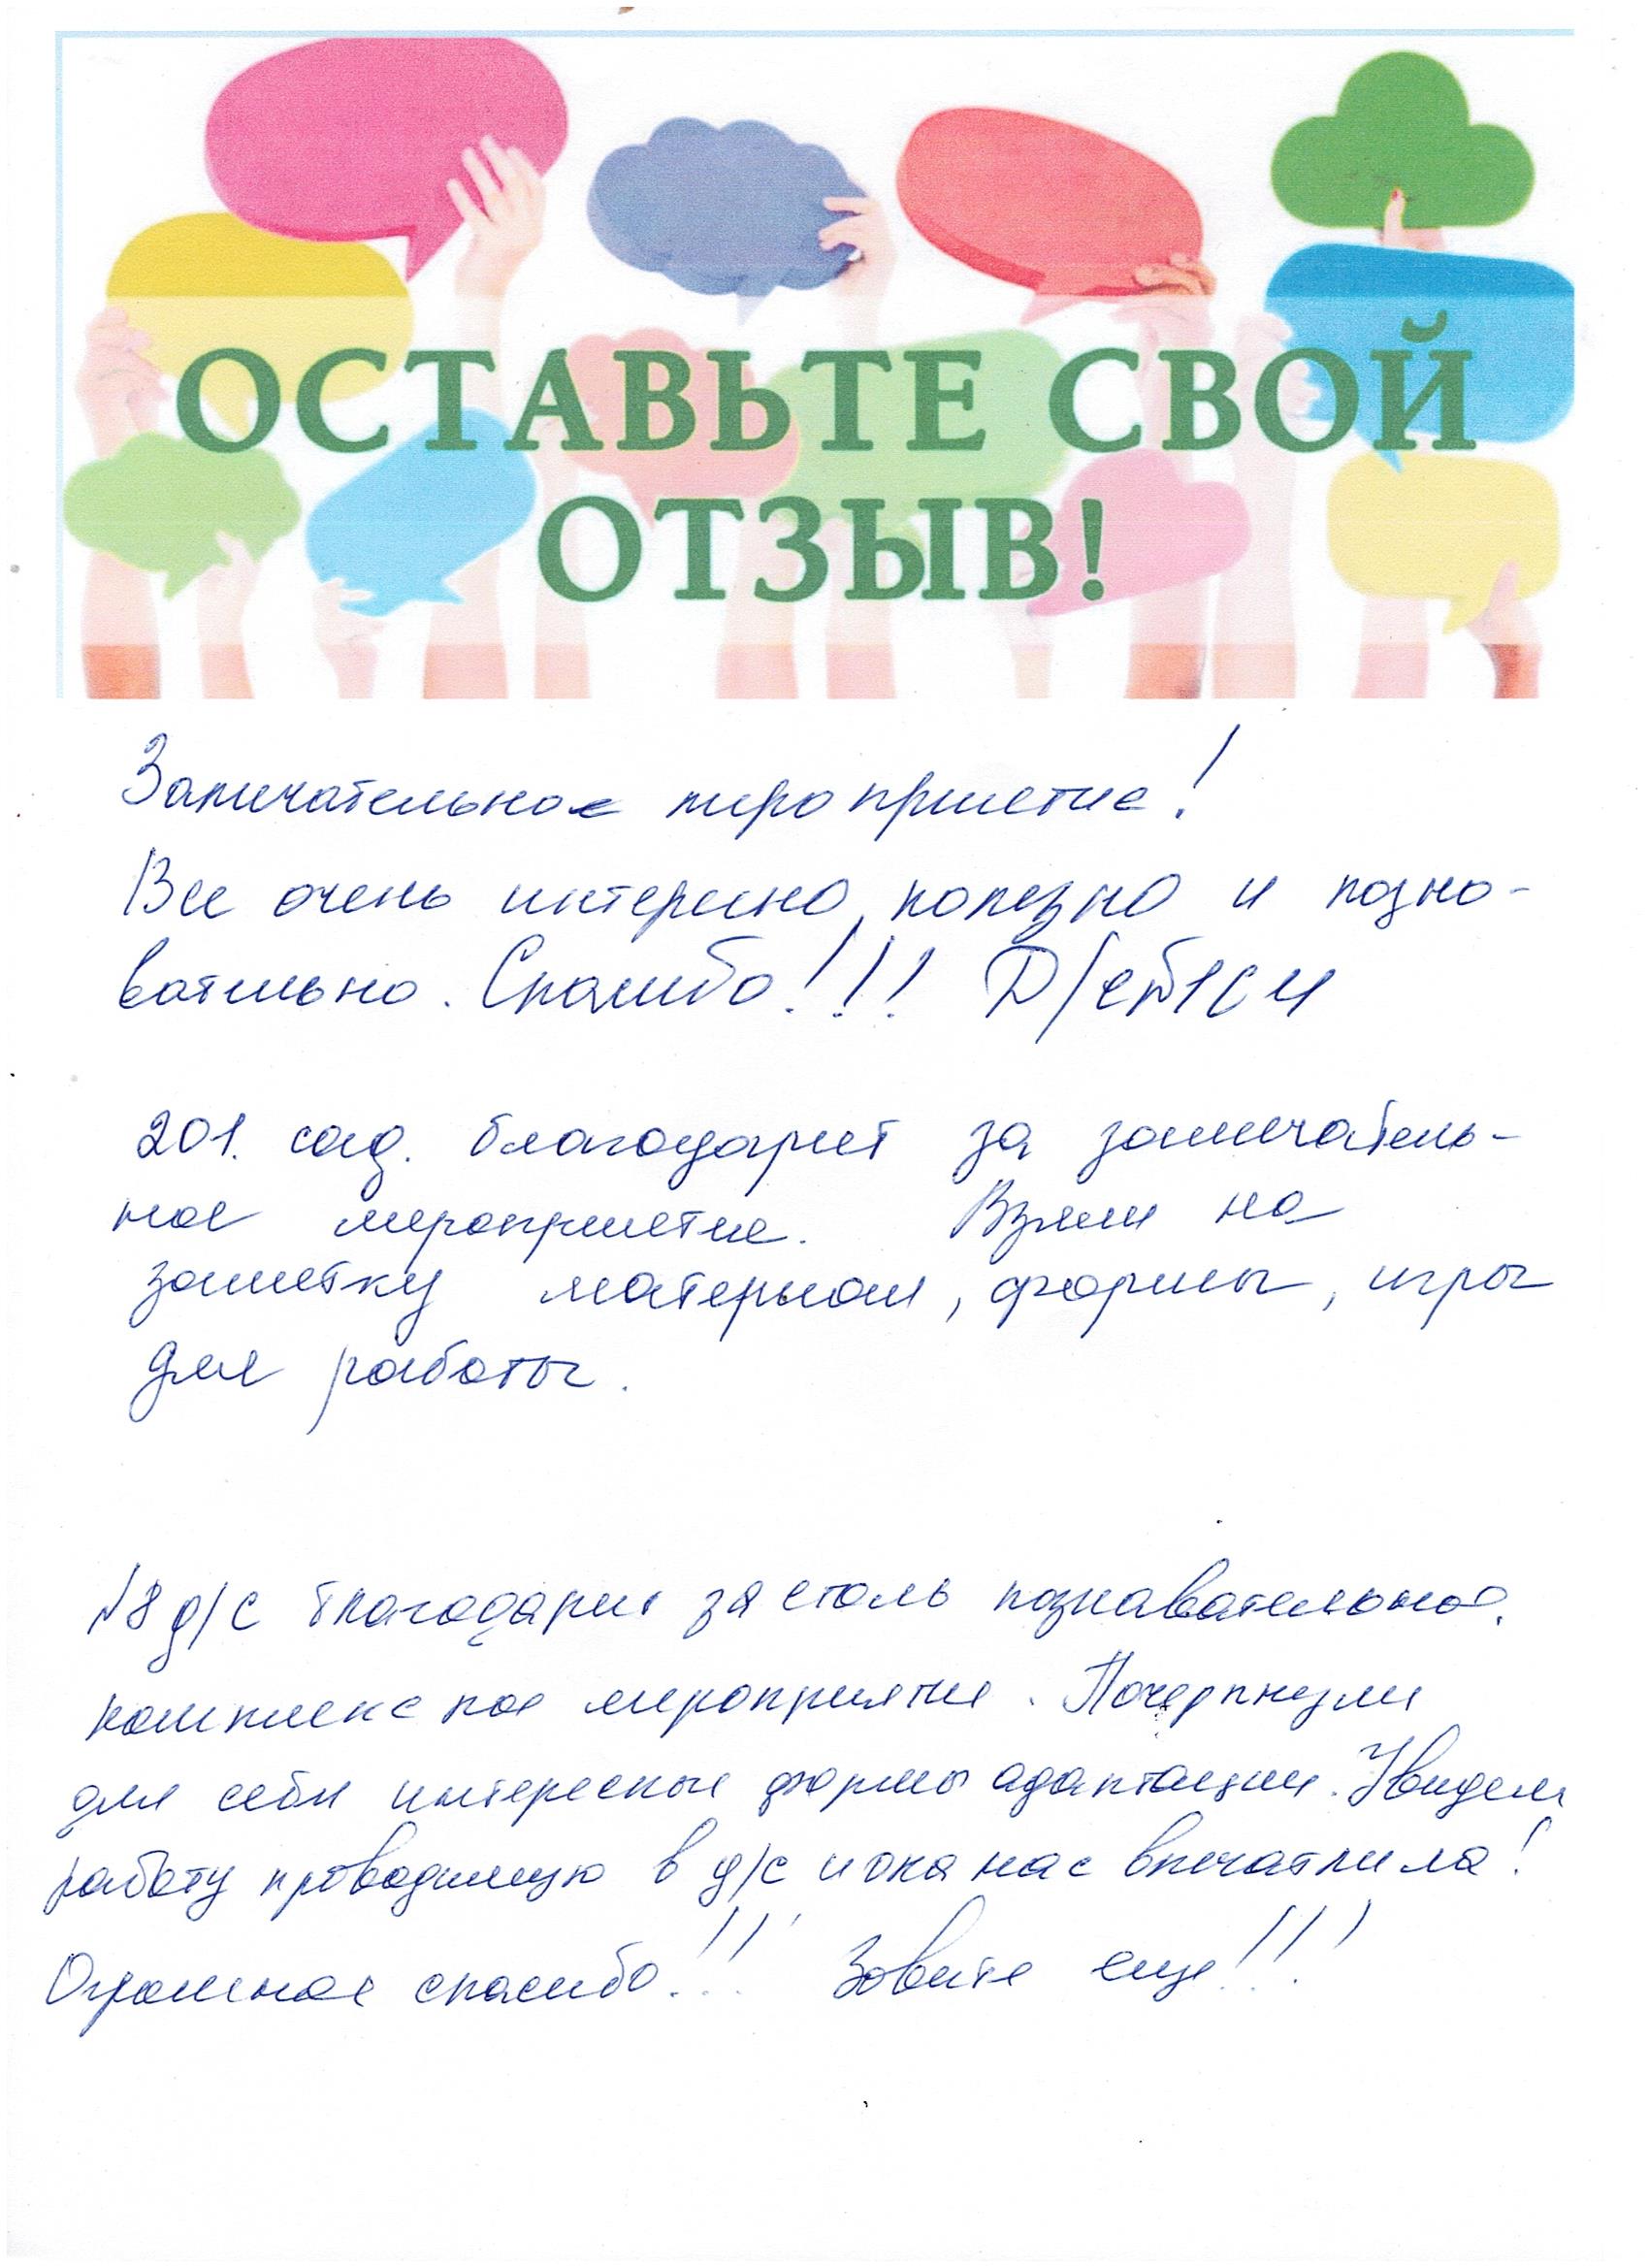 ОСТАВЬТЕ СВОЙ
ОТЗЫВ!
Замечательное мероприятие!
Все очень интересно, полезно и позна-
вательно. Спасибо!!! Д/с
201. сад. благодарит за замечатель-
ное мероприятие. Взяли на
заметку материал, формы, игры
для работы.
№8 д/с благодарит за столь познавательное,
комплексное мероприятие. Почерпнули
для себя интересные формы адаптации. Увидели
работу проводимую в д/с и она нас впечатлила!
Огромное спасибо!!! Зовите еще!!!